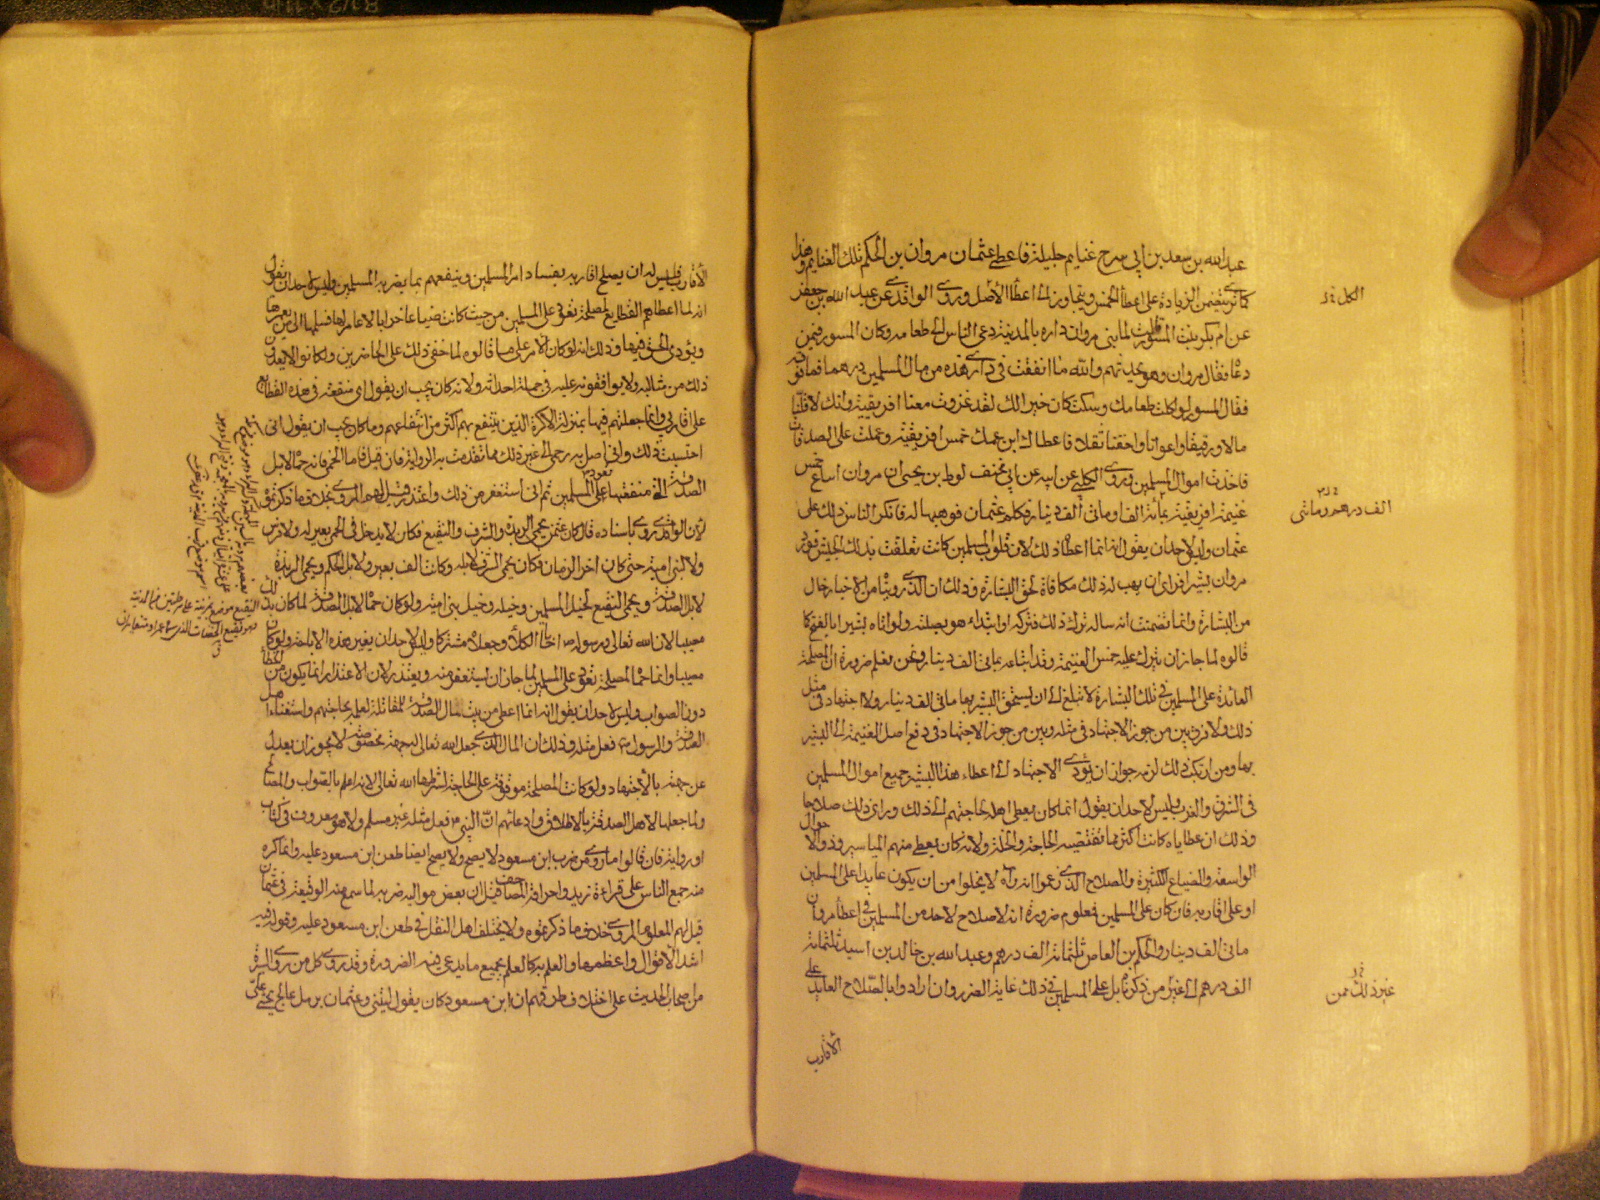 عبد الله بن سعد بن ابي سرح غنايم جليلة فاعطى عثمان مروان بن الحكم تلك الغنايم وهذا
كما ترى يتضمن الزيادة على اعطأ الخمس ويتجاوز الى اعطأ الاصل وروى الواقدي عن عبد الله بن جعفر
عن ام بكر بنت المسور قالت لما بنى مروان داره بالمدينة دعى الناس الى طعامه وكان المسور فيمن
دعا فقال مروان وهو يحدثهم والله ما انفقت في داري هذه من مال المسلمين درهما فما فوقه
فقال المسور لو اكلت طعامك وسكت كان خيرا لك لقد غزوت معنا افريقية وانك لاقلنا
مالا ورقيقا واعوانا واخفنا ثقلا فاعطاك ابن عمك خمس افريقية وعملت على الصدقات
فاخذت اموال المسلمين وروى الكلبي عن ابيه عن ابي مخنف لوط بن يحيى ان مروان ابتاع خمس
غنيمة افريقية بمائة الف او مائتي الف دينار فكلم عثمان فوهبها له فانكر الناس ذلك على
عثمان وليس لاحد ان يقول انه انما اعطاه ذلك لان قلوب المسلمين كانت تعلقت بذلك الجيش فورد
مروان بشيرا فراى ان يهب له ذلك مكافاة لحق البشارة وذلك ان الذي رويناه من الاخبار خال
من البشارة وانما تضمنت انه ساله ترك ذلك فتركه او ابتداء هو بصلته ولو اتاه بشيرا بالفتح كما
قالوه لما جاز ان يترك عليه خمس الغنيمة وقد ابتاعه بمائتي الف دينار ونحن نعلم ضرورة ان المصلحة
العائدة على المسلمين في تلك البشارة لا تبلغ الى ان يستحق البشير بها مائتي الف دينار ولا اجتهاد في مثل
ذلك ولا فرق بين من جوز الاجتهاد في مثله وبين من جوز الاجتهاد في دفع اصل الغنيمة الى البشير
بها ومن ارتكب ذلك لزمه جواز ان يؤدي الاجتهاد الى اعطاء هذا البشير جميع اموال المسلمين
في الشرق والغرب وليس لاحد ان يقول انما كان يعطي اهله لحاجتهم الى ذلك وراى ذلك صلاحا
وذلك ان عطاياه كانت اكثر مما تقتضيه الحاجة والخلة ولانه كان يعطي منهم المياسير وذوا الاحوال
الواسعة والضياع الكثيرة والصلاح الذي زعموا انه راه لا يخلوا من ان يكون عايدا على المسلمين
او على اقاربه فان كان على المسلمين فمعلوم ضرورة انه لا صلاح لاحد من المسلمين في اعطأ مروان
مائتي الف دينار والحكم بن العاص ثلثمائة الف درهم وعبد الله بن خالد بن اسيد ثلثمائة
الف درهم الى غير من ذكرنا بل على المسلمين في ذلك غاية الضرر وان ارادوا الصلاح العايد على
الاقارب
الف درهم ومائتي
غير ذلك ممن
الاقارب فليس له ان يصلح اقاربه بفساد امر المسلمين وينفعهم بما يضر به المسلمين وليس لاحد ان يقول
انه لما اعطاهم القطايع لمصلحة تعود على المسلمين من حيث كانت ضياعا خرابا لا عامر لها فسلمها الى من يعمرها
ويؤدى الحق فيها وذلك انه لو كان الامر على ما قالوه لما خفي ذلك على الحاضرين ولكانوا لا يعدون
ذلك من مثالبه ولا يواقفونه عليه في جملة احداثه ولانه كان يجب ان يقول اي منفعة في هذه القطايع
على اقاربي وانما جعلتهم فيها بمنزلة الاكرة الذين ينتفع بهم اكثر من انتفاعهم وما كان يجب ان يقول اني
احتسبت ذلك واني اصل به رحمي الى غير ذلك مما تقدمت به الرواية فان قيل فاما الحمى فانه حمى لابل
الصدقة التي منفعتها تعود على المسلمين ثم اني استغفر من ذلك واعتذر قيل لهم المروي بخلاف ما ذكرتموه
لان الواقدي روى باسناده قال كان عثمن يحمى الربذة والشرف والنقيع فكان لا يدخل في الحمى بعير له ولا فرس
ولا لبني امية حتى كان اخر الزمان فكان يحمى الشرف لابله وكانت الف بعير ولابل الحكم ويحمى الربذة
لابل الصدقة ويحمى النقيع لخيل المسلمين وخيله وخيل بني امية ولو كان حمى لابل الصدقة لما كان بذلك
مصيبا لان الله تعالى ورسوله اباحا الكلأ وجعلاه مشتركا وليس لاحد ان يغير هذه الاباحة ولو كان
مصيبا وانما حماه لمصلحة تعود على المسلمين لما جاز ان يستغفر منه ويعتذر لان الاعتذار انما يكون من الخطأ
دون الصواب وليس لاحد ان يقول انه انما اعطى من بيت مال الصدقة المقاتلة لعلمه بحاجتهم واستغناء اهل
الصدقة والرسول فعل مثله وذلك ان المال الذي جعل الله تعالى له جهة مخصوصة لا يجوز ان يعدل
عن جهته بالاجتهاد ولو كانت المصلحة موقوفة على الحاجة لشرطها الله تعالى لانه اعلم بالصواب والمصالح
ولما جعلها لاهل الصدقة بالاطلاق وادعائهم ان النبي فعل مثله غير مسلم ولا هو معروف في كتاب
او رواية فان قالوا ما روي من ضرب ابن مسعود لا يصح ولا يصح ايضا طعن ابن مسعود عليه وانما كره
منه جمع الناس على قراءة زيد واحراقه المصاحف قيل ان بعض مواليه ضربه لما سمع منه الوقيعة في عثمان
قيل لهم المعلوم المروي خلاف ما ذكرتموه ولا يختلف اهل النقل في طعن ابن مسعود عليه وقوله فيه
اشد الاقوال واعظمها والعلم به كالعلم بجميع ما يدعى فيه الضرورة وقد روى كل من روى السيرة
من اصحاب الحديث على اختلاف طرقهم ان ابن مسعود كان يقول ليتني وعثمان برمل عالج يحثي علي